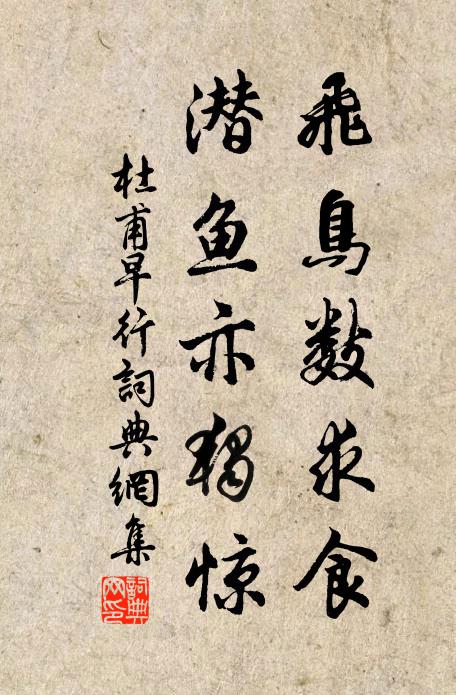 飛鳥數求食
潜鱼亦獨惊
杜甫早行詞典網集
詞典网印